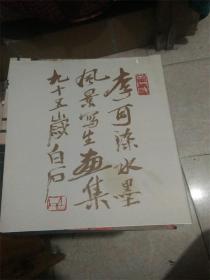 李可染水墨
风景写生画集
九十五岁白石